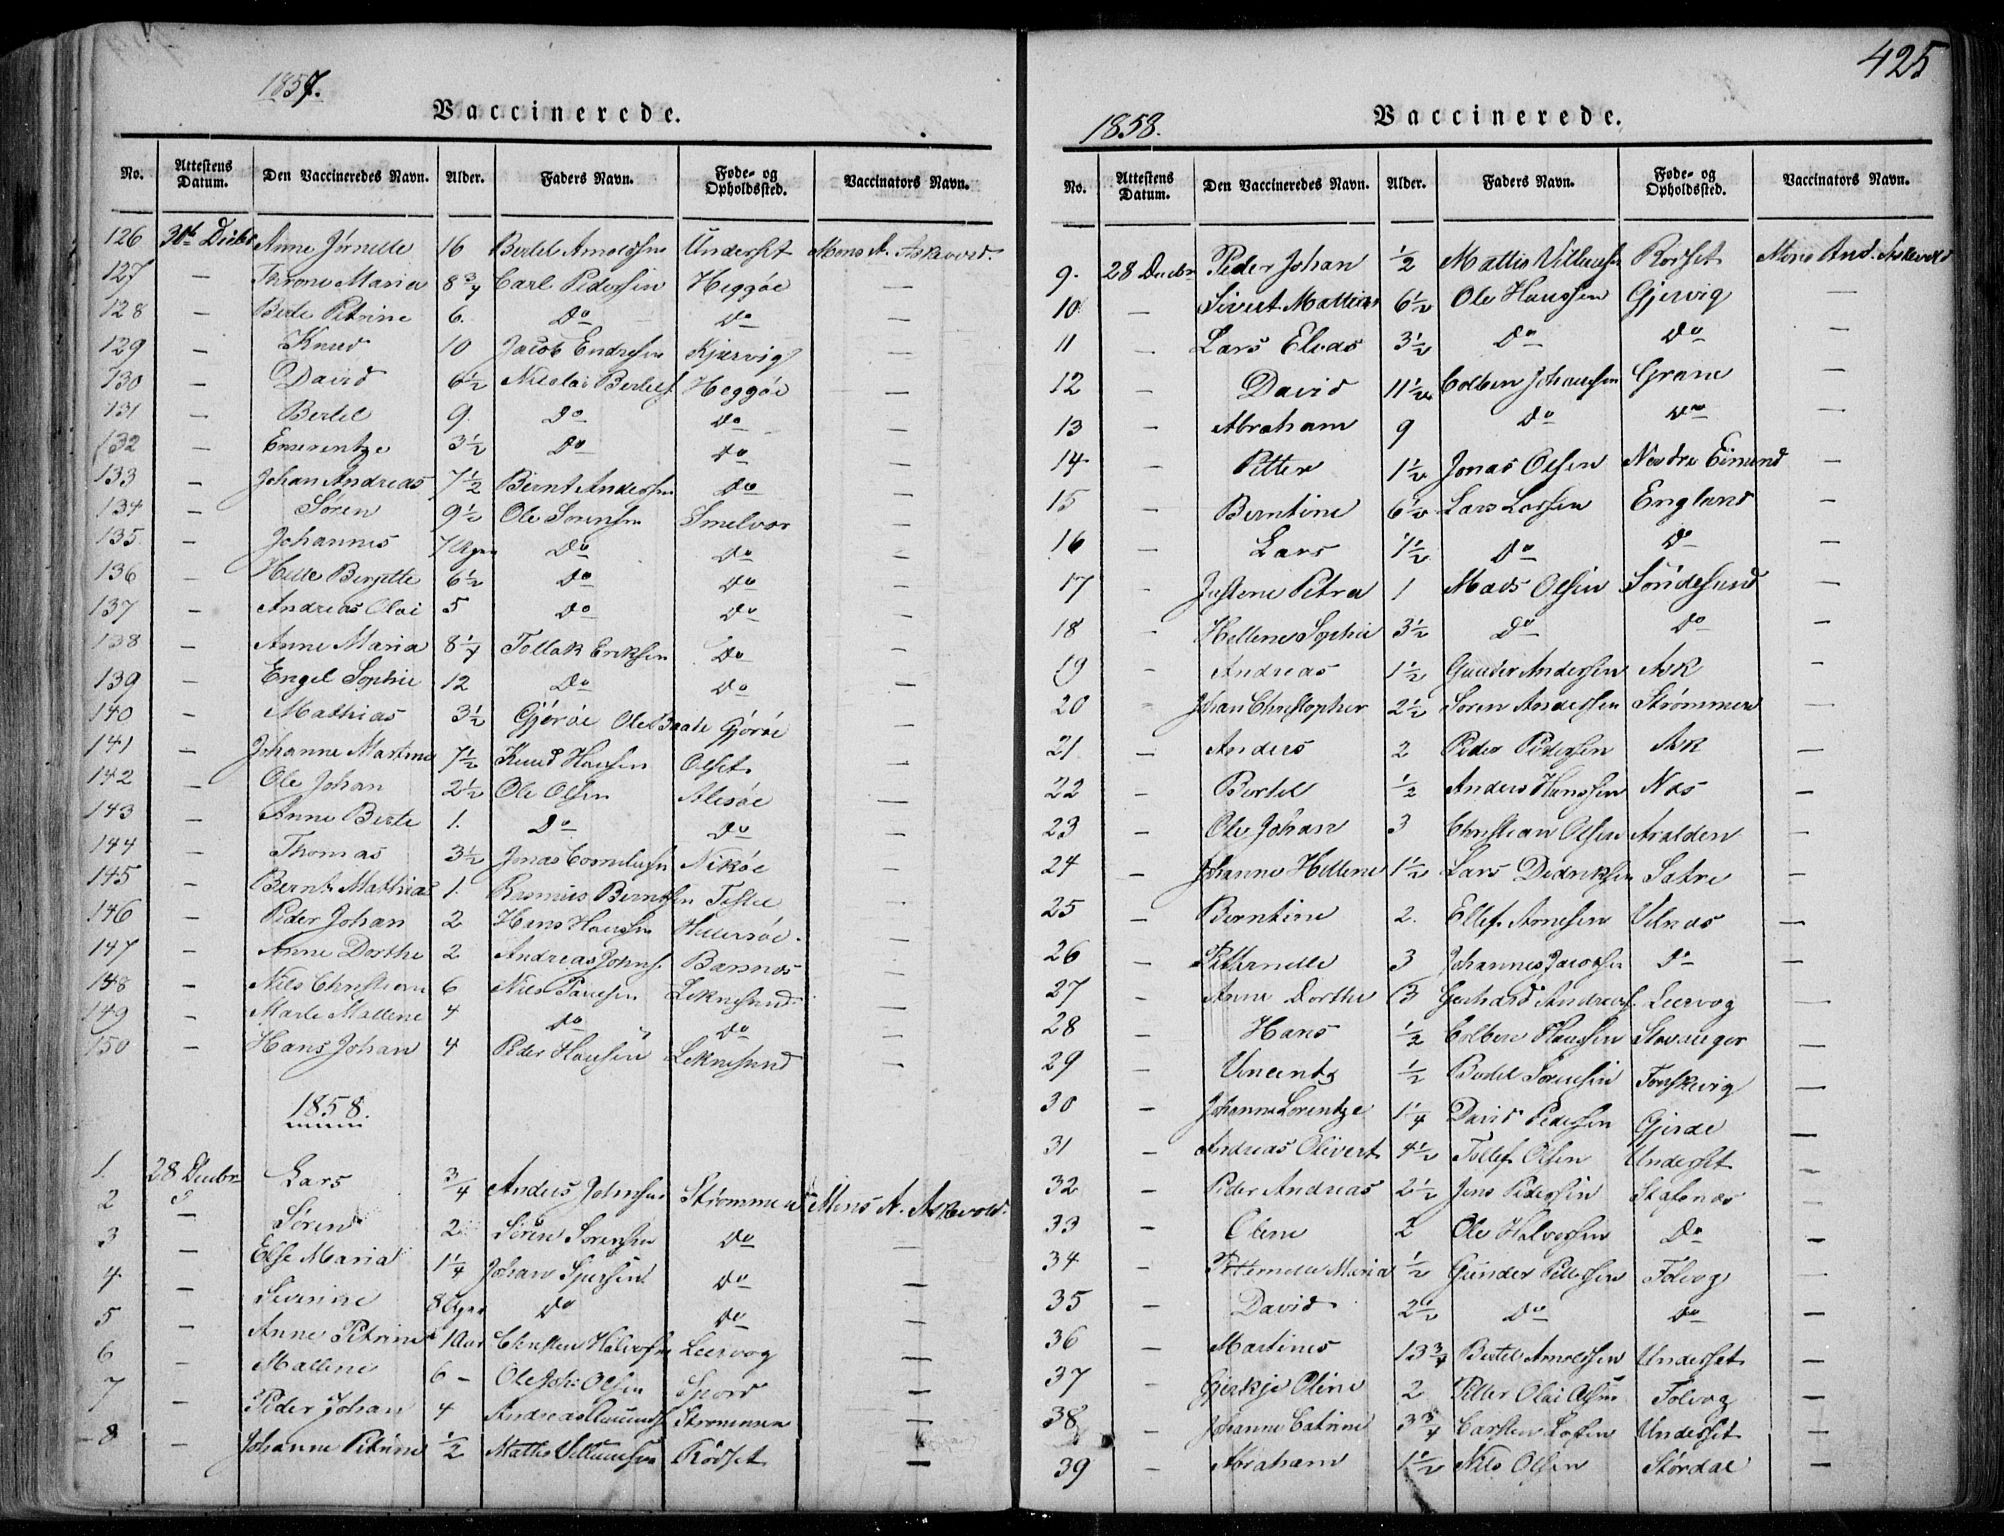 1857.
Vaccinerede.
No. Attestens Datum. Den Vaccineredes Navn. Alder. Faders Navn. Føde- og Opholdssted. Vaccinators Navn.
126 30te Decbr Anne Jørnelle 16 Bertel Arnoldsen Underset Mons A. Askevold
127 — Maria 8 3/4 Carl Pedersen Heggøe —
128 — Berte Petrine 6 Do Do —
129 — Knud 10 Jacob Endresen Kjærvig —
130 — David 6 1/2 Nicolai Bertels. Heggøe —
131 — Bertel 9. Do Do —
132 — Emerentze 3 1/2 Do Do —
133 — Johan Andreas 7 1/2 Bernt Andersen Do —
134 — Søren 9 1/2 Ole Sørensen Smelvær —
135 — Johannes 7 Ugr Do Do —
136 — Helle Bergitte 6 1/2 Do Do —
137 — Andreas Olai 5 Do Do —
138 — Anne Maria 8 1/4 Tollak Eriksen Do —
139 — Engel Sophie 12 Do Do —
140 — Mathias 3 1/2 Gjørøe Ole Baade Gjørøe —
141 — Johanne Martine 7 1/2 Knud Hansen Olset —
142 — Ole Johan 2 1/2 Ole Olsen Alesøe —
143 — Anne Berte 1. Do Do —
144 — Thomas 3 1/2 Jonas Corneliusen Nikøe —
145 — Bernt Mathias 1. Rasmus Berntsen —
146 — Peder Johan 2 Hans Hansen —
147 — Anne Dorthe 2 Andreas Johns. —
148 — Nils Christian 6 Nils Leknesund —
149 — Marte Mallene 4 Do Do —
150 Hans Johan 4 Peder Hansen Leknesund —
1858.
1. 28 Decbr Lars 3/4 Anders Johnsen Strømmen Mons A. Askevold.
2 Søren 2 Søren Sørensen Do —
3 — Else Maria 1 1/4 Johan Do —
4 — Severine 8 Ugr Do Do —
5 — Anne Petrine 1 Aar Christen Halvorsen Leervog —
6 — Mallene 6 – Ole Olsen —
7 — Peder Johan 4 Andreas Strømmen —
8 — Johanne Petrine 1/2 Mattis Villumsen Rødset —
425
1858.
Vaccinerede.
No. Attestens Datum. Den Vaccineredes Navn. Alder. Faders Navn. Føde- og Opholdssted. Vaccinators Navn.
9. 28 Decbr Peder Johan 1/2 Mattis Villumsen Rødset Mons And. Askevold
10 — Sivert Mathias 6 1/2 Ole Hansen Gjervig —
11 — Lars Elvas 3 1/2 Do Do —
12 — David 11 1/2 Colben Johansen Grane —
13 — Abraham 9 Do Do —
14 — Petter 1 1/2 Jonas Olsen Nedre Eimend —
15 — Berntine 6 1/2 Lars Larsen England —
16 — Lars 1 1/2 Do Do —
17 — Justene Petra 1 Mads Olsen Søndesund —
18 — Hellene Sophie 3 1/2 Do Do —
19 — Andreas 1 1/2 Gunder Andersen Ask —
20 Johan Christopher 2 1/2 Søren Andersen Strømmen —
21 — Anders 2 Peder Pedersen Ask —
22 — Bertel 1/2 Anders Hansen Næs —
23 — Ole Johan 3 Christian Olsen Aralden —
24 — Johanne Hellene 1 1/2 Lars Didriksen Sætre —
25 — Berntine 2. Ellef Arnesen Velnæs —
26 — Petternelle 3 Johannes Jacobsen Do —
27 — Anne Dorthe 3 Gerhard Andreas. Leervog —
28 — Hans 1/2 Colben Hansen Stavanger —
29 — Vincentz 1/2 Bertel Sørensen —
30 — Johanne Lorentze 1 1/4 David Pedersen Gjerde —
31 — Andreas Olivert 4 1/2 Tollef Olsen Underset —
32 — Peder Andreas 2 1/2 Jens Pedersen Stafsnæs —
33 — Oline 2 Ole Halvorsen Do —
34 — Petternelle Maria 1/2 Gunder Pettersen Tolvog —
35 — David 2 1/2 Do Do —
36 — Martines 13 3/4 Bertel Arnoldsen Underset —
37 — Gjertje Oline 2 Petter Olai Olsen Tolvog —
38 — Johanne Catrine 3 3/4 Carsten Underset —
39 — Abraham 1 1/2 Nils Olsen Størdal —